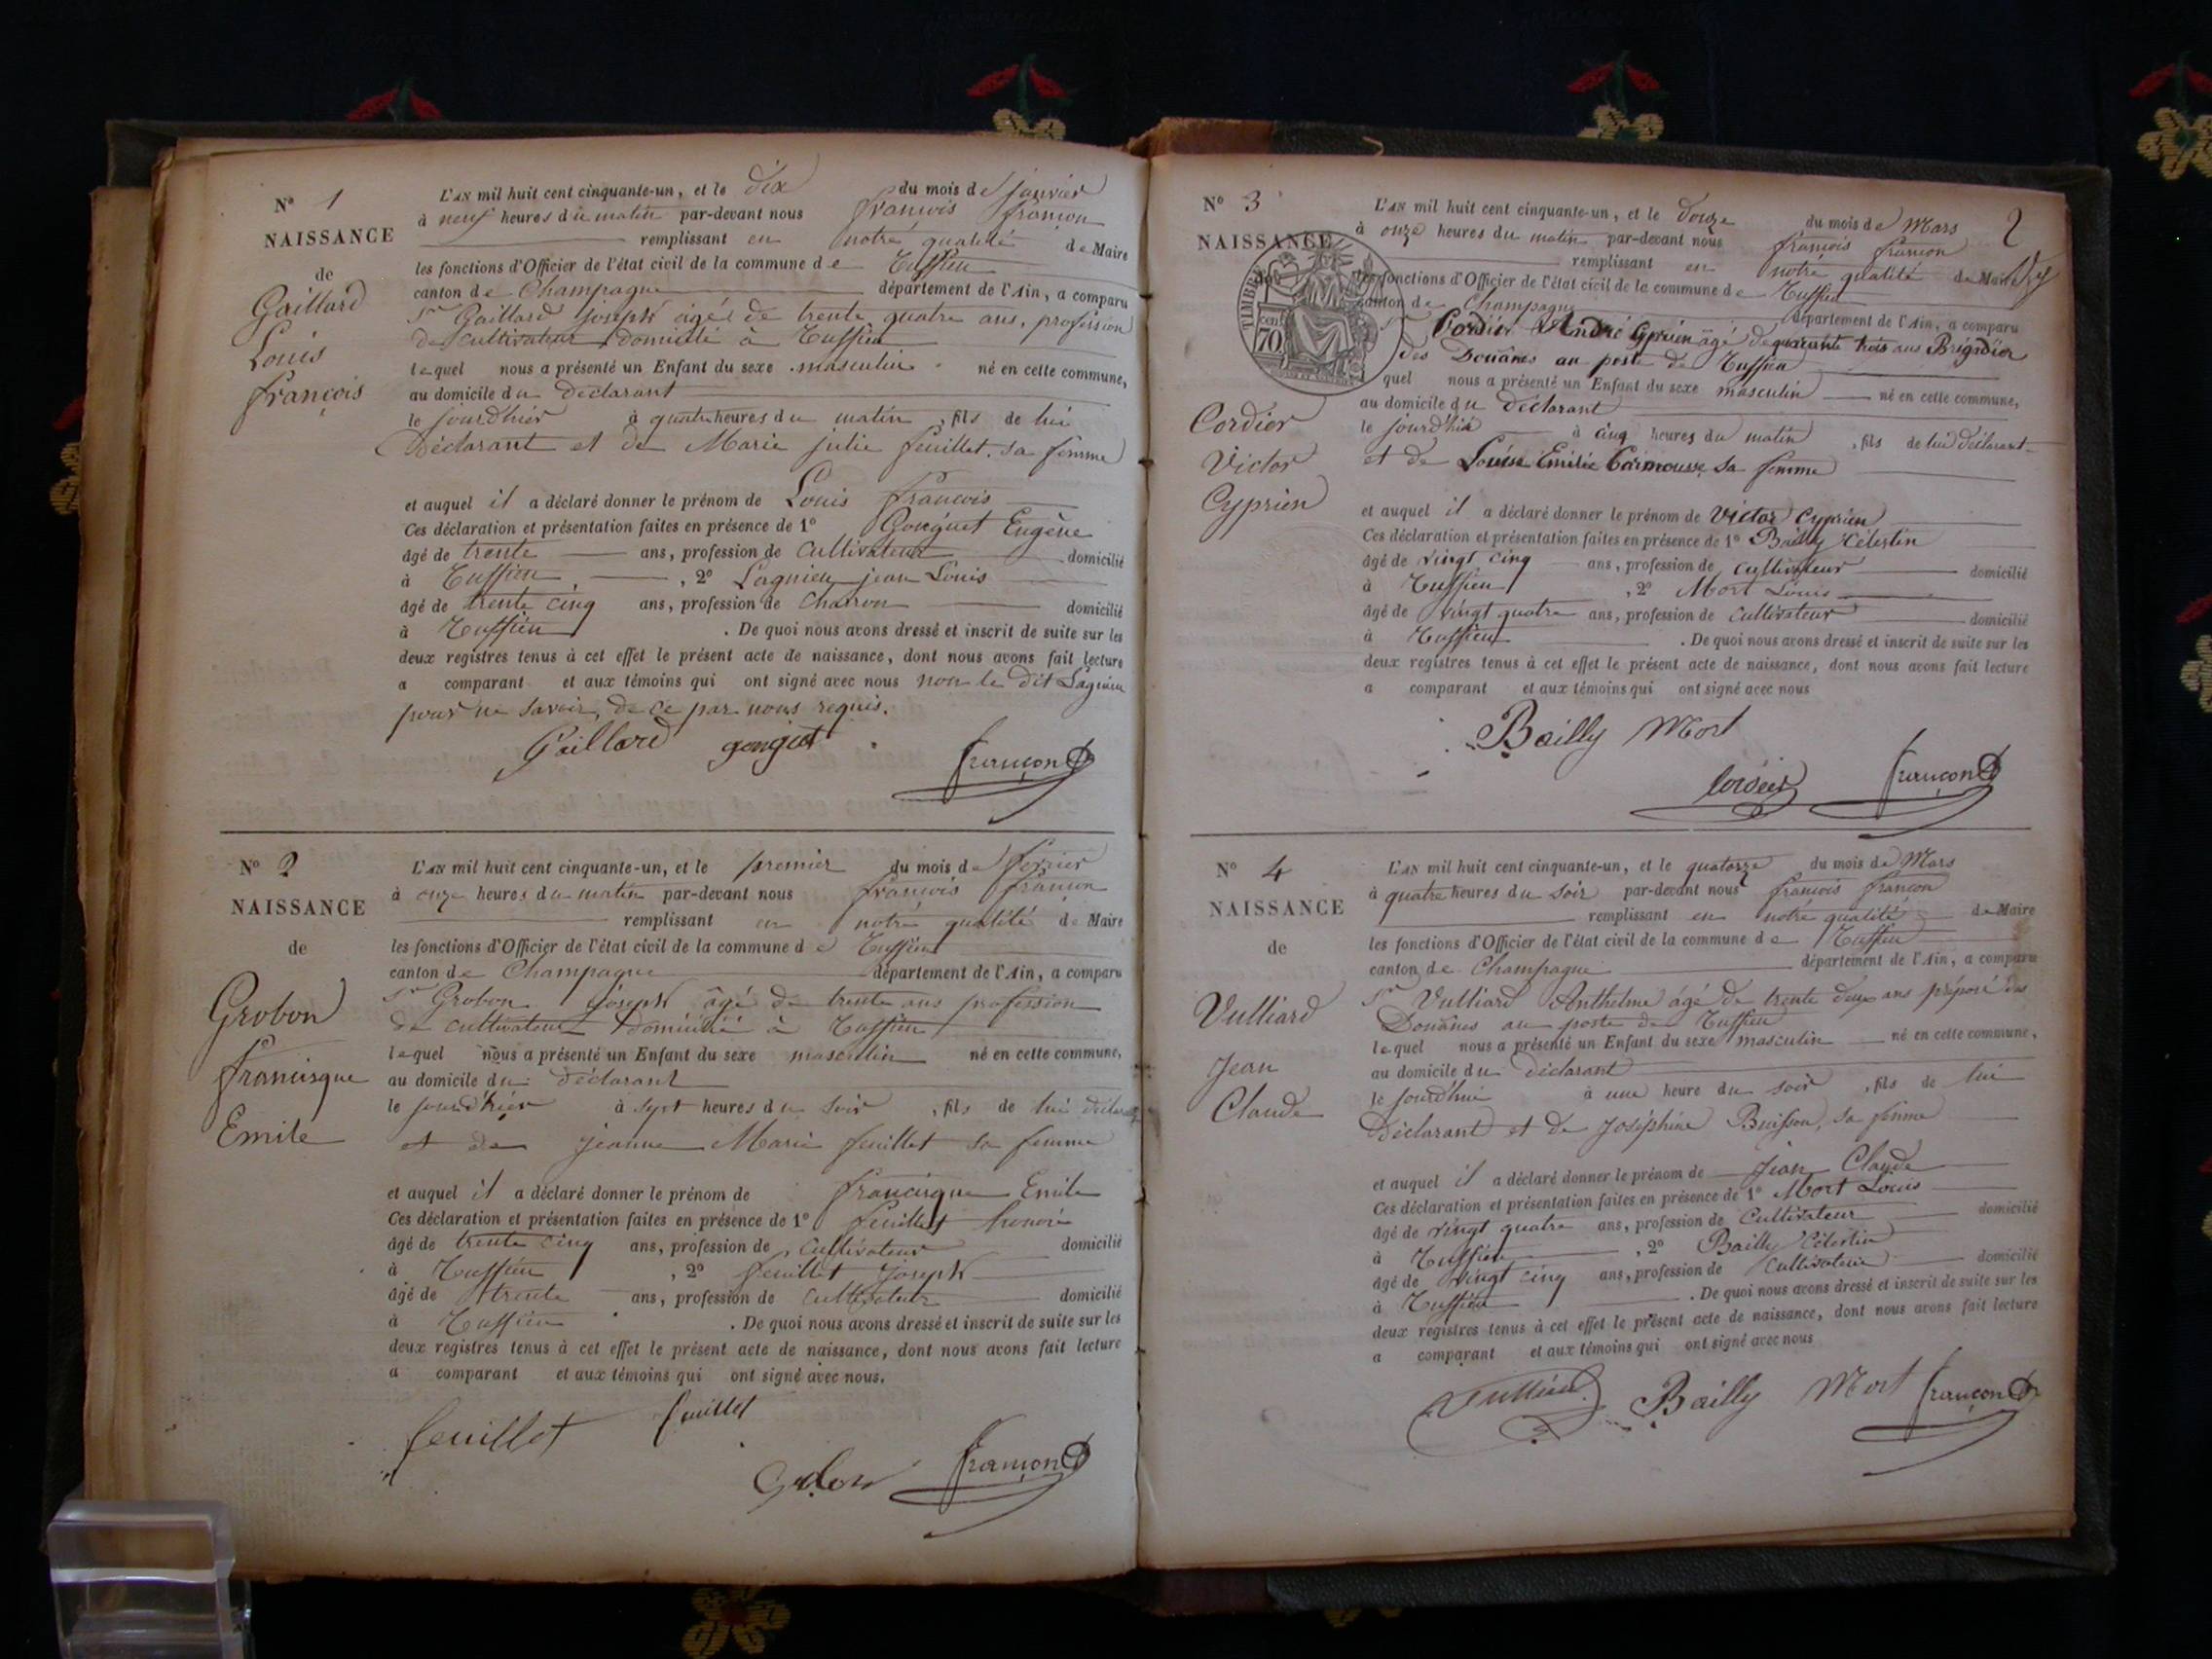 N° 1
NAISSANCE
de
Gaillard
Louis
François
L'AN mil huit cent cinquante-un, et le dix du mois de janvier
à neuf heures du matin par-devant nous françois françon
remplissant en notre qualité de Maire
les fonctions d'Officier de l'état civil de la commune de Ruffieu
canton de Champagne département de l'Ain, a comparu
Sr Gaillard joseph âgé de trente quatre ans, profession
de cultivateur domicilié à Ruffieu
lequel nous a présenté un Enfant du sexe masculin né en cette commune,
au domicile du déclarant
le jourd'hier à quatre heures du matin, fils de lui
Déclarant et de Marie julie feuillet, sa femme
et auquel il a déclaré donner le prénom de Louis françois
Ces déclaration et présentation faites en présence de 1° Gonguet Eugène
âgé de trente ans, profession de cultivateur domicilié
à Ruffieu, 2° Lagnieu jean Louis
âgé de trente cinq ans, profession de charron domicilié
à Ruffieu. De quoi nous avons dressé et inscrit de suite sur les
deux registres tenus à cet effet le présent acte de naissance, dont nous avons fait lecture
a comparant et aux témoins qui ont signé avec nous non le dit Lagnieu
pour ne savoir, de ce par nous requis.
Gaillard gonguet françon
N° 2
NAISSANCE
de
Grobon
francisque
Emile
L'AN mil huit cent cinquante-un, et le premier du mois de fevrier
à onze heures du matin par-devant nous françois françon
remplissant en notre qualité de Maire
les fonctions d'Officier de l'état civil de la commune de Ruffieu
canton de Champagne département de l'Ain, a comparu
Sr Grobon joseph âgé de trente ans profession
de cultivateur domicilié à Ruffieu
lequel nous a présenté un Enfant du sexe masculin né en cette commune,
au domicile du déclarant
le jourd'hier à sept heures du soir, fils de lui déclarant
et de jeanne Marie feuillet sa femme
et auquel il a déclaré donner le prénom de francisque Emile
Ces déclaration et présentation faites en présence de 1° feuillet honoré
âgé de trente cinq ans, profession de cultivateur domicilié
à Ruffieu, 2° feuillet joseph
âgé de trente ans, profession de cultivateur domicilié
à Ruffieu. De quoi nous avons dressé et inscrit de suite sur les
deux registres tenus à cet effet le présent acte de naissance, dont nous avons fait lecture
a comparant et aux témoins qui ont signé avec nous.
feuillet feuillet
françon
2
N° 3
NAISSANCE
TIMBRE
70
Cordier
Victor
Cyprien
L'AN mil huit cent cinquante-un, et le douze du mois de Mars
à onze heures du matin par-devant nous françois françon
remplissant en notre qualité de Maire
les fonctions d'Officier de l'état civil de la commune de Ruffieu
canton de Champagne département de l'Ain, a comparu
Sr Cordier André Cyprien âgé de quarante trois ans Brigadier
des Douânes au poste de Ruffieu
quel nous a présenté un Enfant du sexe masculin né en cette commune,
au domicile du déclarant
le jourd'hui à cinq heures du matin, fils de lui déclarant
et de Louise Emilie Carmousse, sa femme
et auquel il a déclaré donner le prénom de Victor Cyprien
Ces déclaration et présentation faites en présence de 1° Bailly Célestin
âgé de vingt cinq ans, profession de cultivateur domicilié
à Ruffieu, 2° Mort Louis
âgé de vingt quatre ans, profession de cultivateur domicilié
à Ruffieu. De quoi nous avons dressé et inscrit de suite sur les
deux registres tenus à cet effet le présent acte de naissance, dont nous avons fait lecture
a comparant et aux témoins qui ont signé avec nous
Bailly Mort
Cordier françon
N° 4
NAISSANCE
de
Vulliard
Jean
Claude
L'AN mil huit cent cinquante-un, et le quatorze du mois de Mars
à quatre heures du soir par-devant nous françois françon
remplissant en notre qualité de Maire
les fonctions d'Officier de l'état civil de la commune de Ruffieu
canton de Champagne département de l'Ain, a comparu
Sr Vulliard Anthelme âgé de trente deux ans préposé des
Douânes au poste de Ruffieu
lequel nous a présenté un Enfant du sexe masculin né en cette commune,
au domicile du déclarant
le jourd'hui à une heure du soir, fils de lui
Déclarant et de Joséphine Buisson, sa femme
et auquel il a déclaré donner le prénom de Jean Claude
Ces déclaration et présentation faites en présence de 1° Mort Louis
âgé de vingt quatre ans, profession de cultivateur domicilié
à Ruffieu, 2° Bailly Célestin
âgé de vingt cinq ans, profession de cultivateur domicilié
à Ruffieu. De quoi nous avons dressé et inscrit de suite sur les
deux registres tenus à cet effet le présent acte de naissance, dont nous avons fait lecture
a comparant et aux témoins qui ont signé avec nous
Vulliard Bailly Mort françon